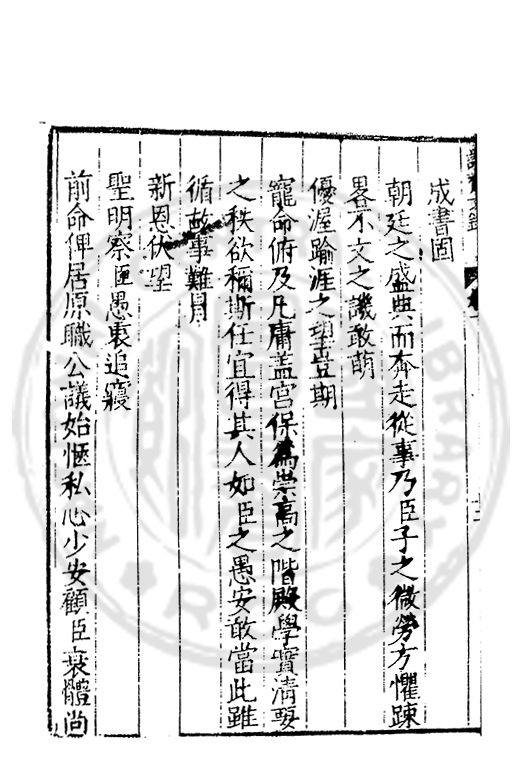 成書固
朝廷之盛典而奔走從事乃臣子之微勞方懼踈
畧不文之譏敢萌
優渥踰涯之望豈期
寵命俯及凡庸盖宫保為崇高之階殿學寔清要
之秩欲稱斯任宜得其人如臣之愚安敢當此雖
循故事難冒
新恩伏望
聖明察臣愚衷追寢
前命俾居原職公議始愜私心少安顧臣衰體尚